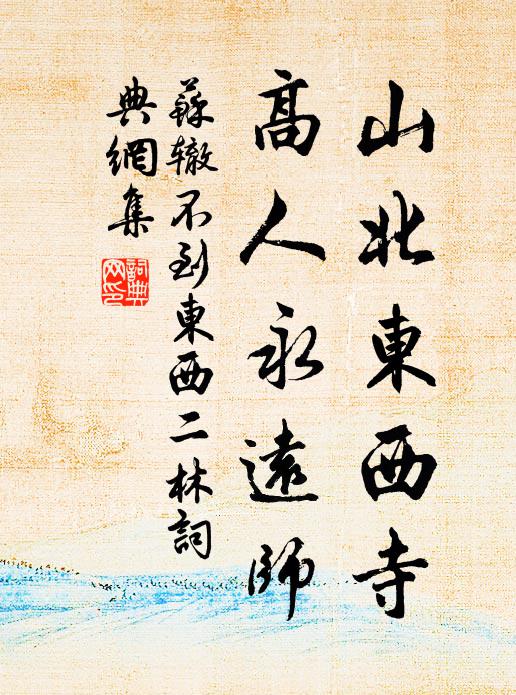 山北東西寺
高人永遠師
蘇辙不到東西二林詞
典網集
詞典
网印